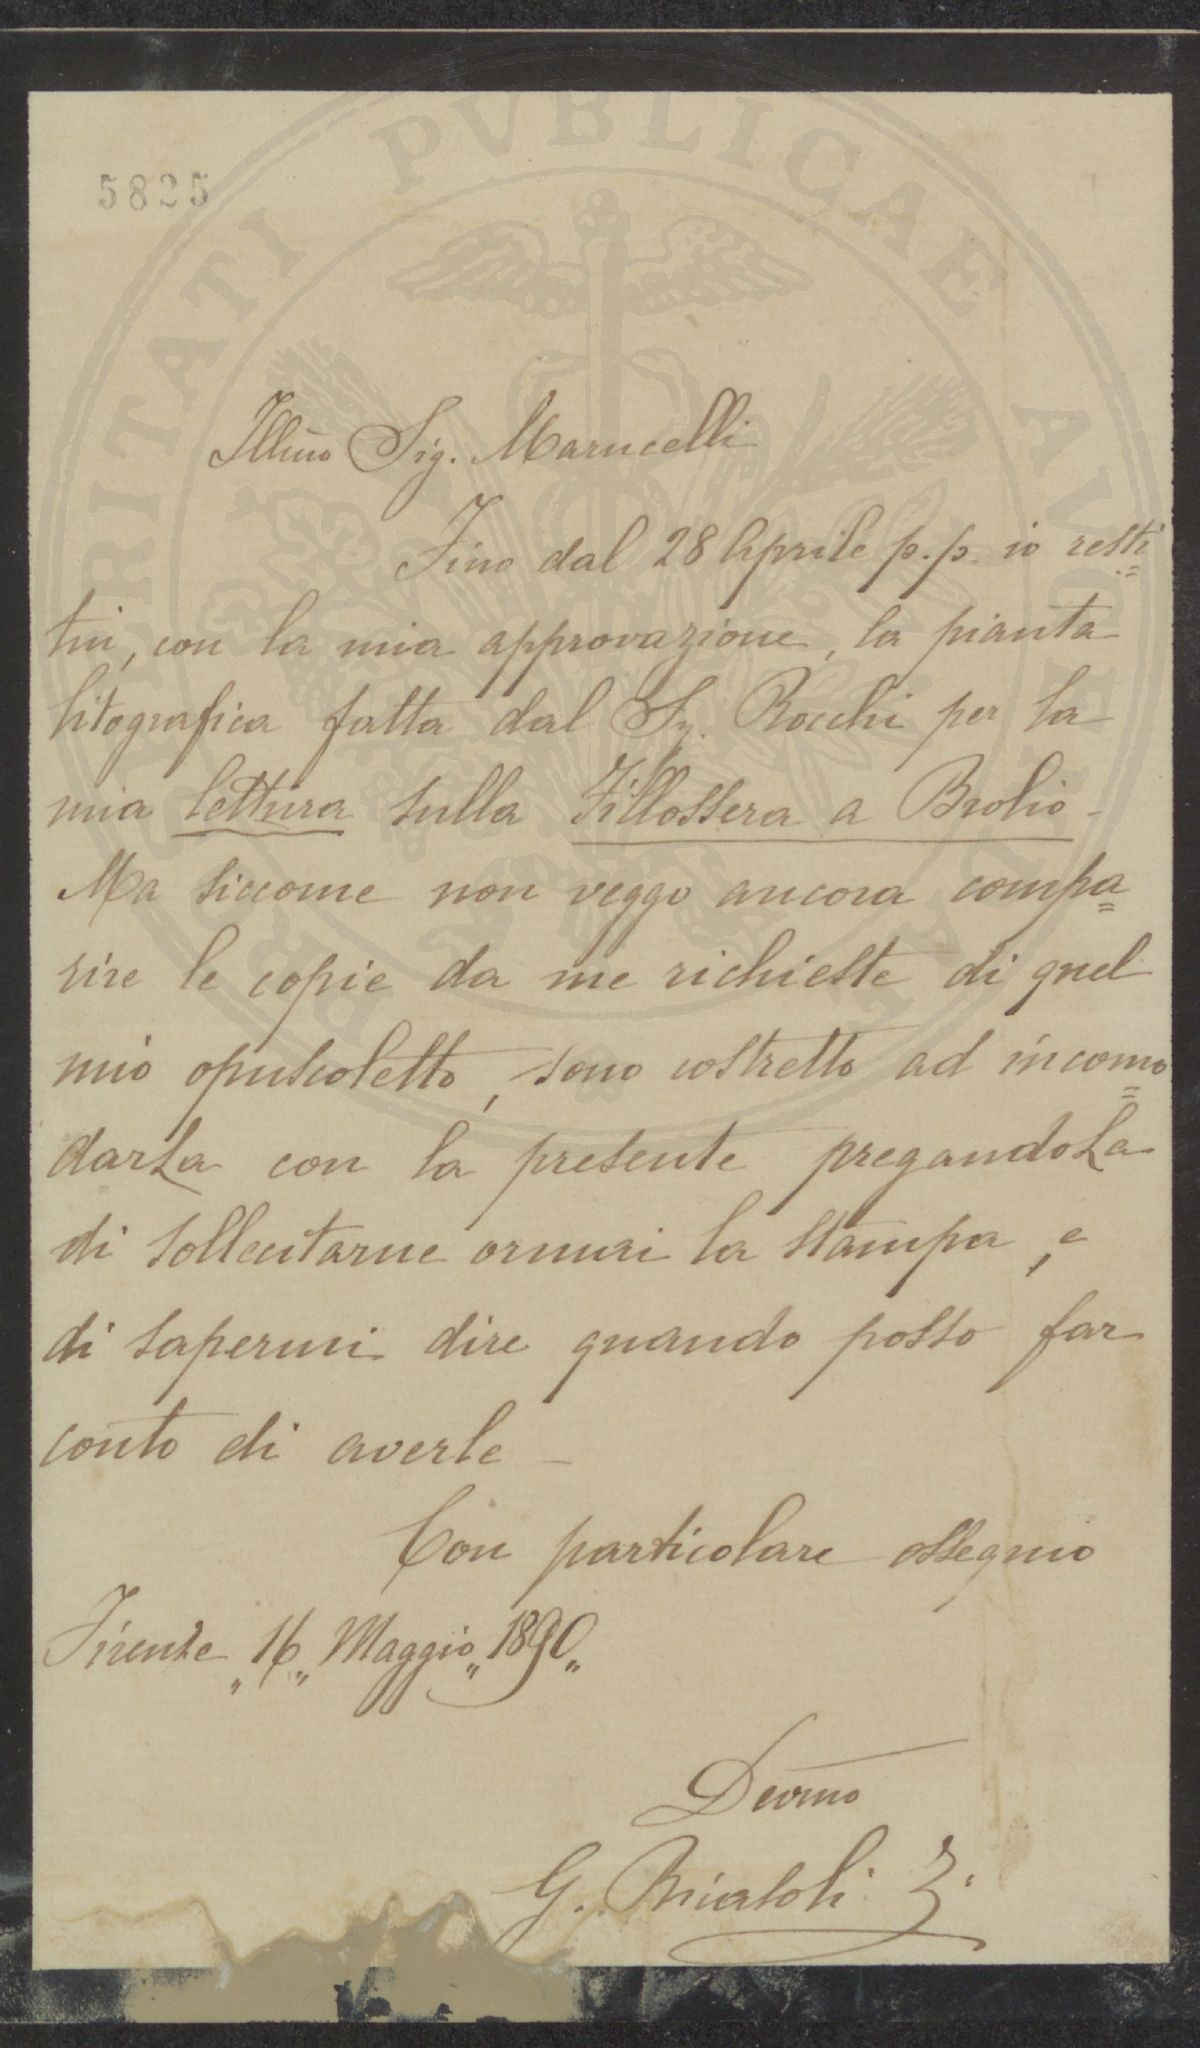 5825
Illmo Sig. Marucelli
Fino dal 28 Aprile p.p. io resti=
tui, con la mia approvazione, la pianta
litografica fatta dal Sg. Rocchi per la
mia lettura sulla Fillossera a Brolio -
Ma siccome non veggo ancora compa=
rire le copie da me richieste di quel
mio opuscoletto, sono costretto ad incomo=
darLa con la presente pregandoLa
di sollecitarne ormai la stampa, e
di sapermi dire quando posso far
conto di averle -
Con particolare ossequio
Firenze „16„ Maggio „1890„
Devmo
G.